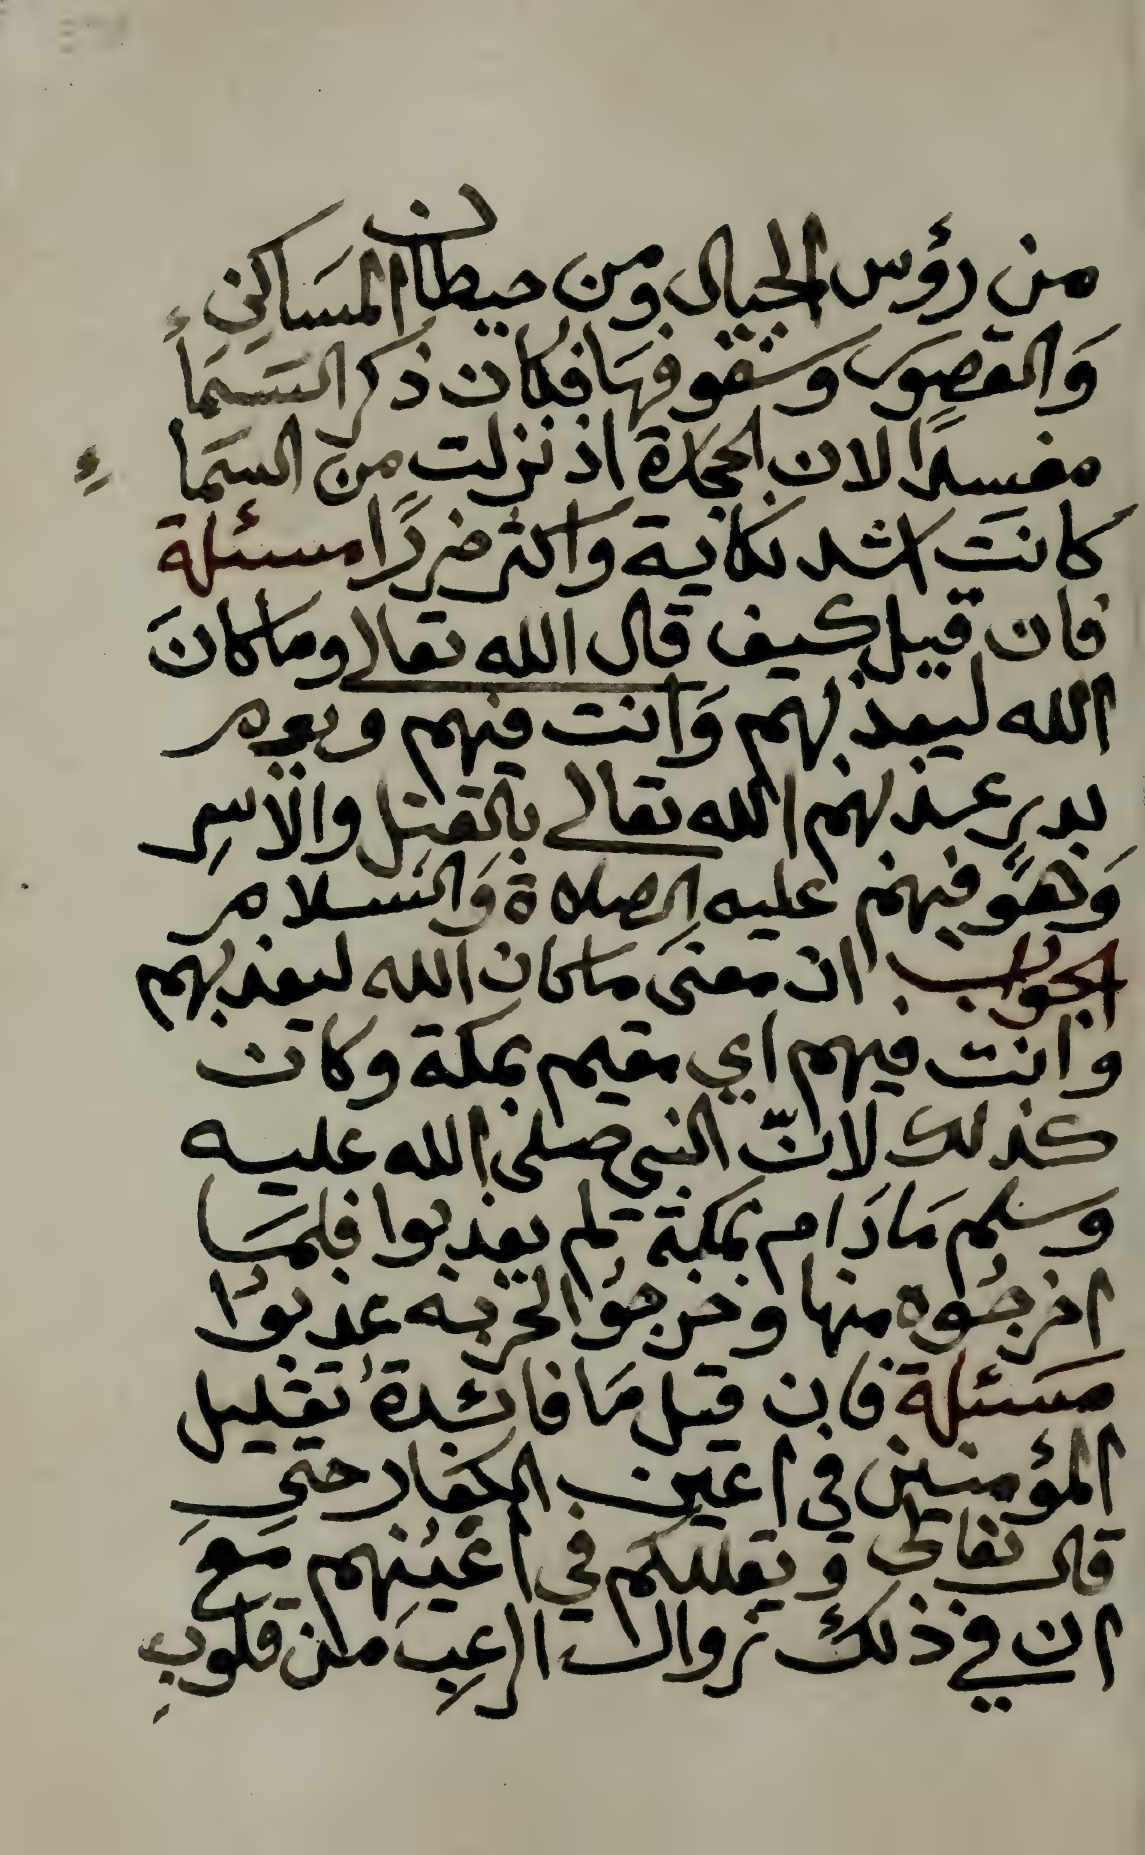 من رؤس الجبال ومن حيطان المساكن
وَالقصور وسقوفها فكان ذكر السَّمَاء
مفسدًا لان الحجارة اذ نزلت من السمَاء
كانتَ اشد نكاية واكثر ضررًا مسئلة
فان قيل كيف قال الله تعالى وما كانَ
الله ليعذبهم وَانت فيهم ويوم
بدر عذبهم الله تعالى بالقتل والاسر
وَهوَ فيهم عليه الصلاة وَالسلام
الجواب ان معنى ما كان الله ليعذبهم
وانت فيهم اي مقيم بمكة وكان
كذلك لانّ النبي صلى الله عليه
وسلم مَا دَام بمكة لم يعذبوا فلمَا
اخرجُوه منها وخرجوُا لحربه عذبوُا
مسَئلة فان قيل مَا فائدة تقليل
المؤمنين في اعين الكفار حتي
قال تعالى ويقللكم في اعينهم مع
ان في ذلك زوال الرعب من قلوبِ